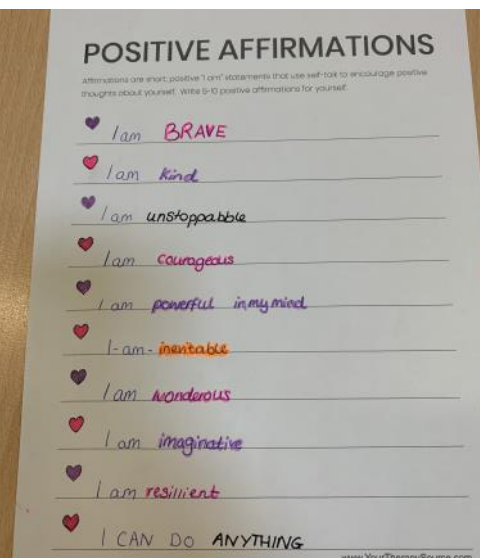 POSITIVE AFFIRMATIONS
Affirmations are short, positive "I am" statements that use self-talk to encourage positive
thoughts about yourself. Write 5-10 positive affirmations for yourself.
I am BRAVE
I am Kind
I am unstoppabble
I am courageous
I am powerful in my mind
I-am-inevitable
I am wonderous
I am imaginative
I am resillient
I CAN DO ANYTHING
www.YourTherapySource.com